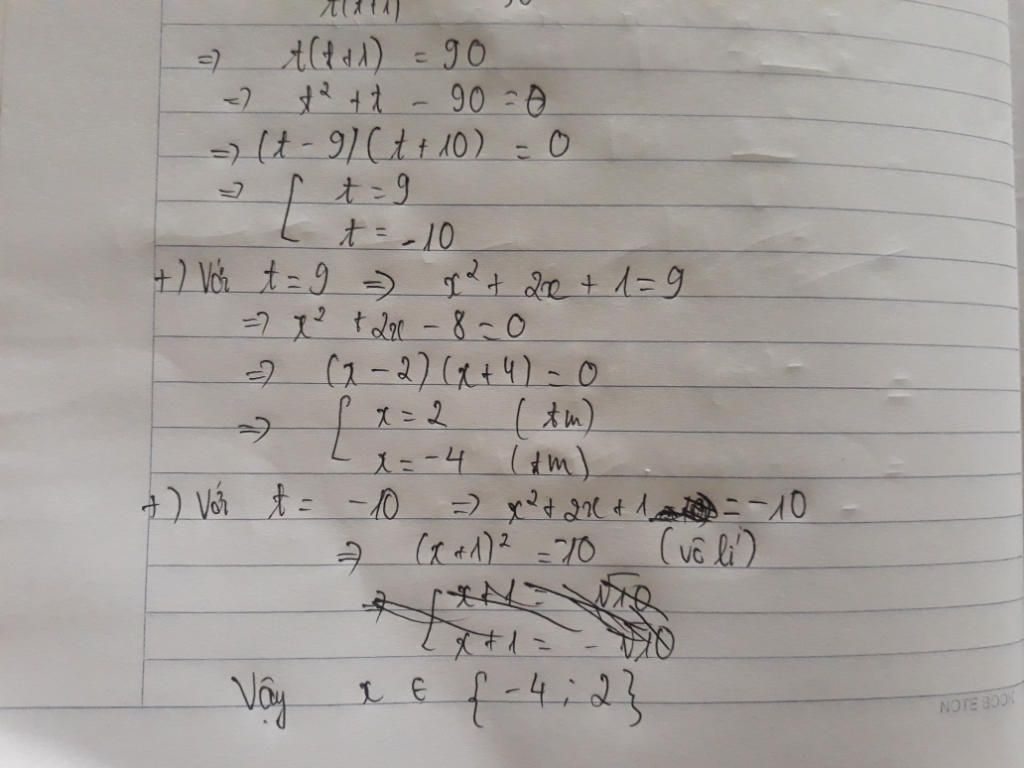 t(t+1) = 90
=> t² + t - 90 = 0
=> (t - 9)(t + 10) = 0
=> [ t = 9
t = -10
+) Với t = 9 => x² + 2x + 1 = 9
=> x² + 2x - 8 = 0
=> (x - 2)(x + 4) = 0
=> [ x = 2 (tm)
x = -4 (tm)
+) Với t = -10 => x² + 2x + 1 = -10
=> (x + 1)² = -10 (vô lí)
=> [ x + 1 = √10
x + 1 = - √10
Vậy x ∈ { -4 ; 2 }
NOTE BOOK